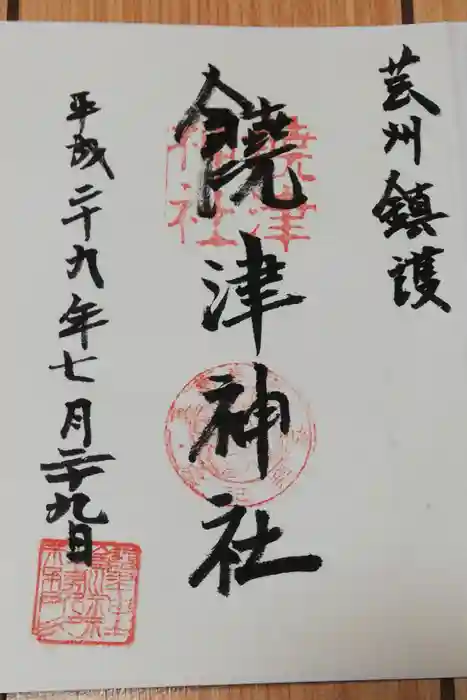 芸州鎮護
饒津神社
平成二十九年七月二十九日
饒津神社